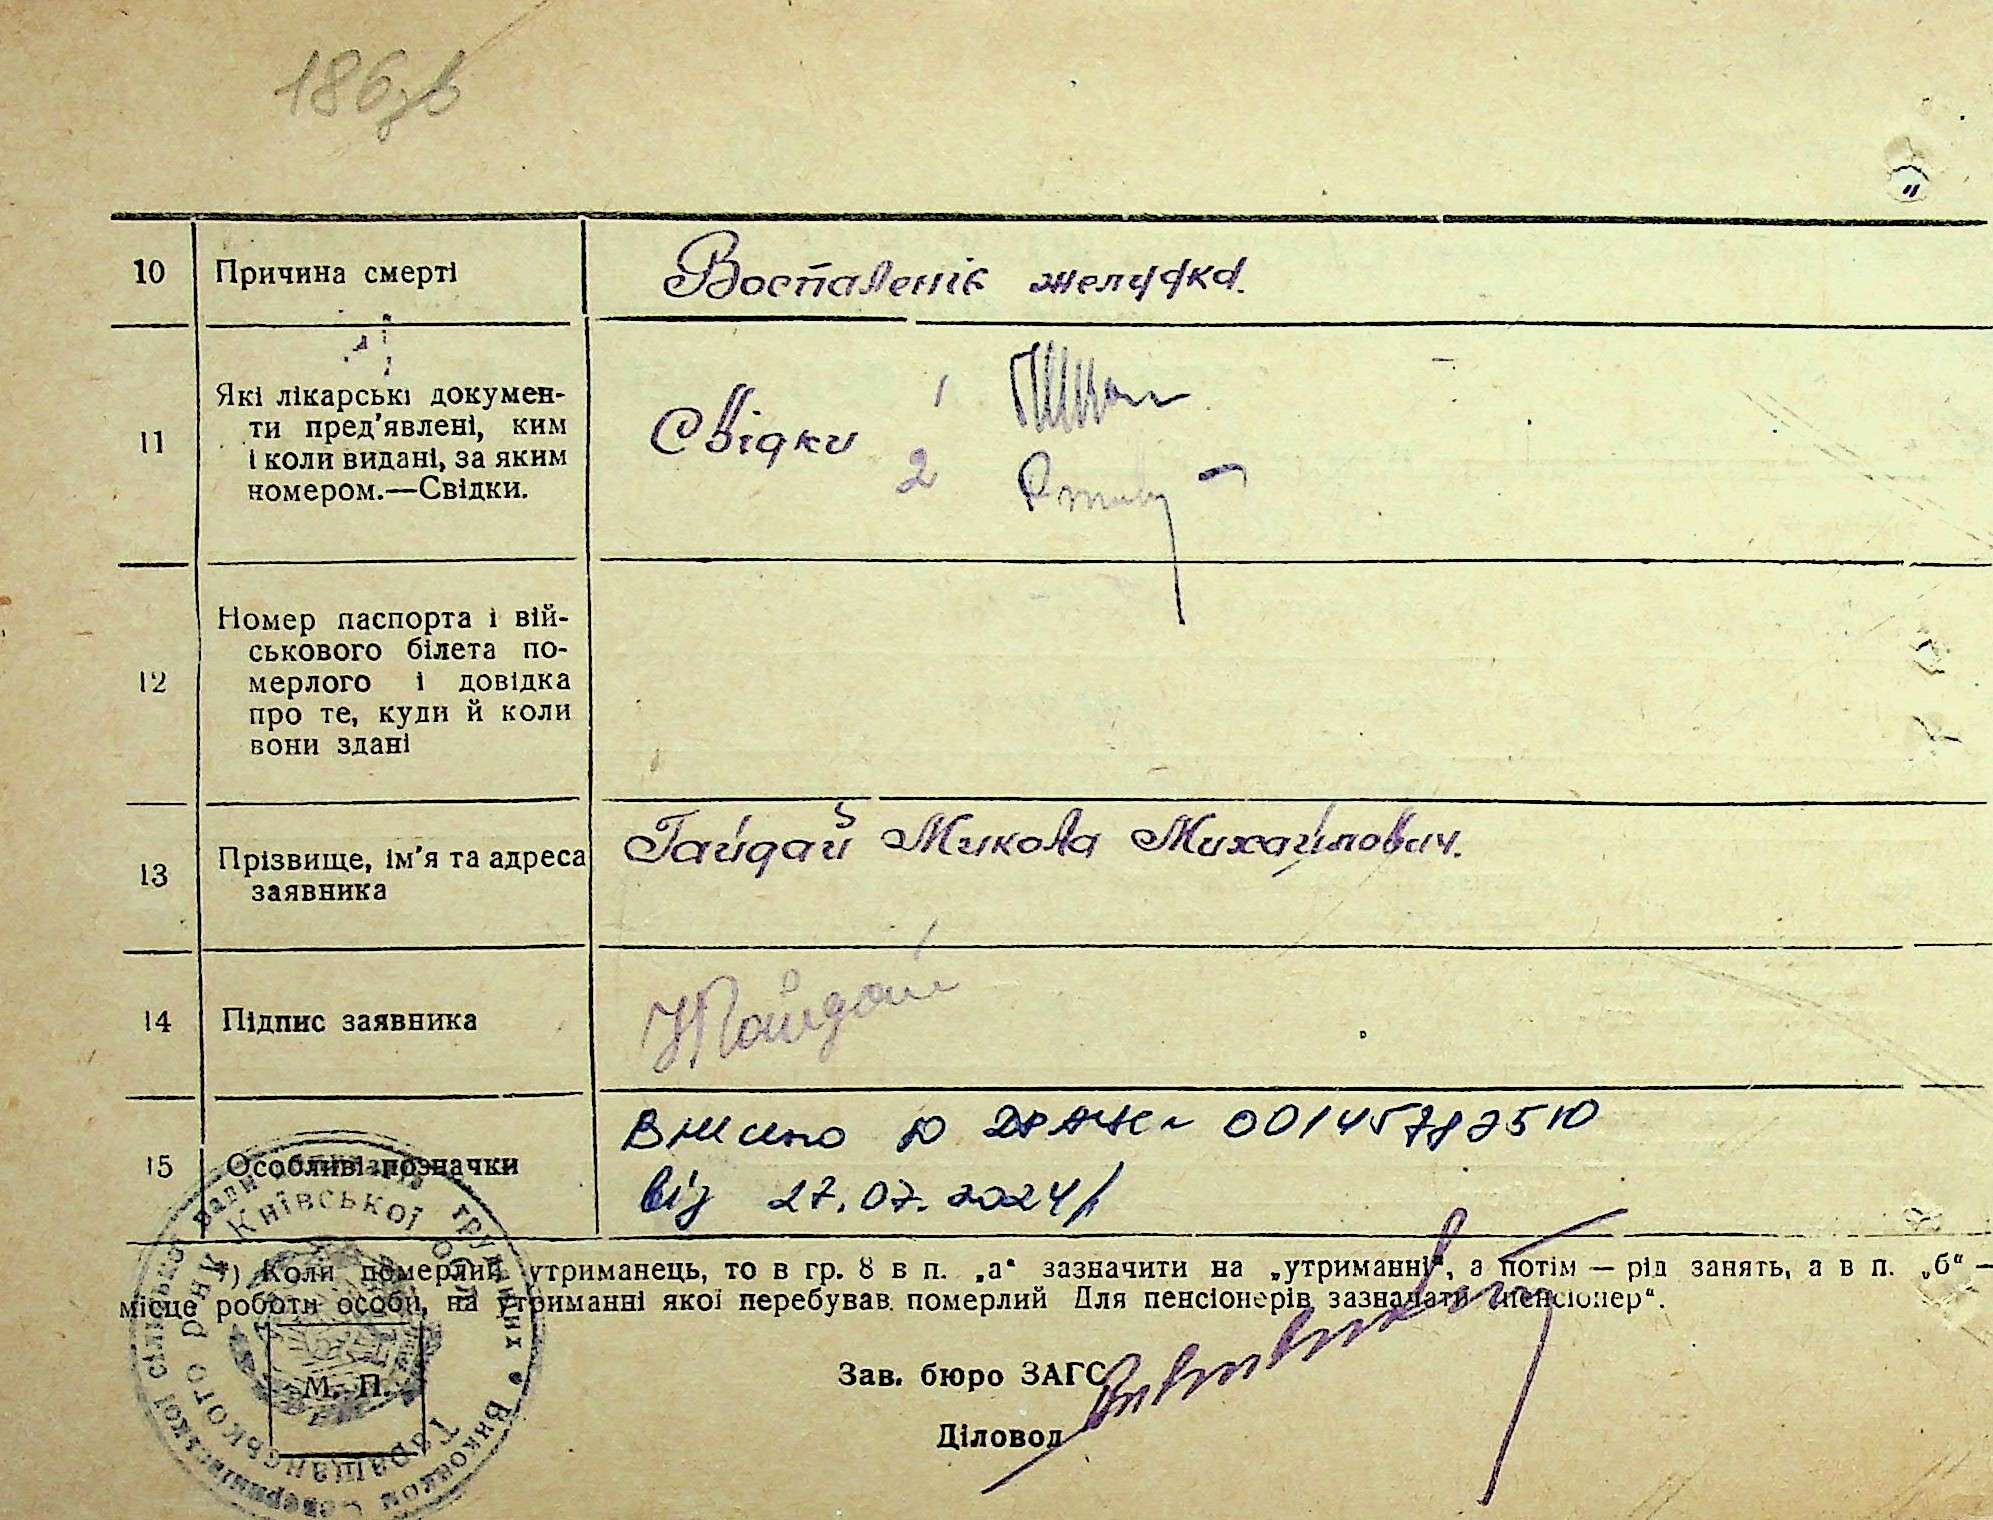 186зв
10 Причина смерті Воспаленіє желудка.
11 Які лікарські докумен-
ти пред'явлені, ким
і коли видані, за яким
номером.—Свідки.
Свідки 1
2
12 Номер паспорта і вій-
ськового білета по-
мерлого і довідка
про те, куди й коли
вони здані
13 Прізвище, ім'я та адреса
заявника
Гайдай Микола Михайлович.
14 Підпис заявника Гайдай
15 Особливі позначки
Внесено до ДРАЦС 00145787510
від 27.07.2024р
*) Коли померлий утриманець, то в гр. 8 в п. „а“ зазначити на „утриманні“, а потім — рід занять, а в п. „б“ —
місце роботи особи, на утриманні якої перебував померлий Для пенсіонерів зазначати „пенсіонер“.
М. П.
Зав. бюро ЗАГС
Діловод
Київської обл
Таращанського р-ну
Виконком Северинівської сільської Ради депутатів трудящих